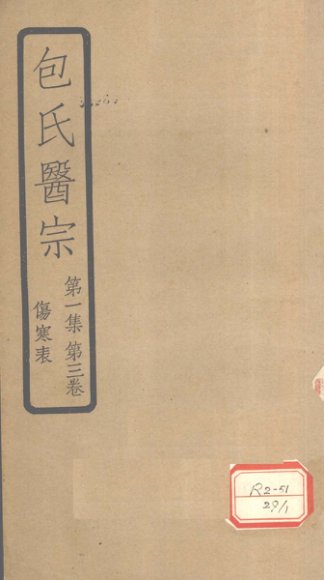 包氏醫宗
第一集 第三卷
傷寒表
R2-51
29/1